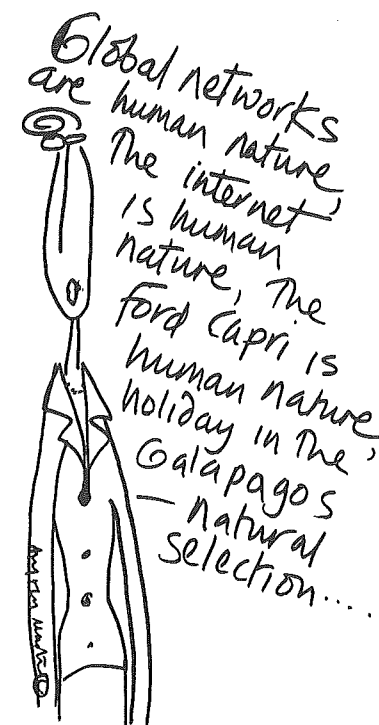 Global networks
are human nature,
The internet
is human
nature, The
Ford Capri is
human nature,
holiday in The
Galapagos
— natural
selection....